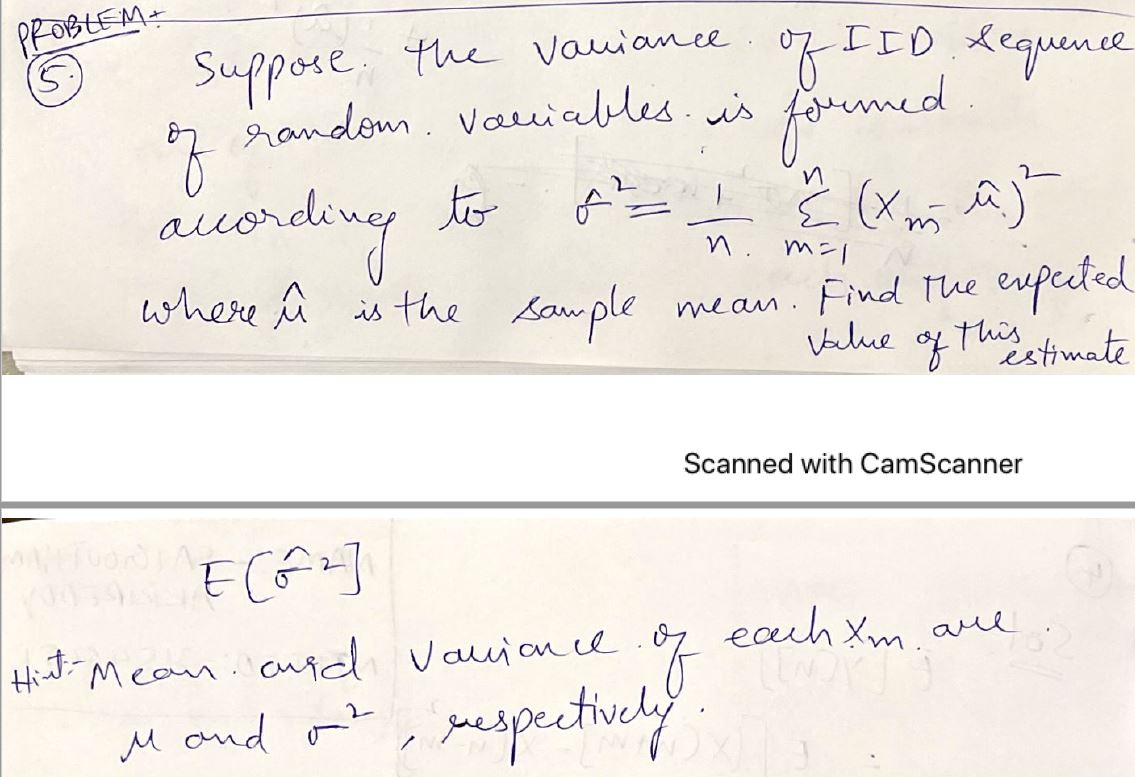 PROBLEM:
5. Suppose. the variance of IID sequence
of random. variables. is formed.
according to σ̂² = 1/n. Σ_{m=1}^{n} (X_m - û.)²
where û is the sample mean. Find the expected
value of this estimate
Scanned with CamScanner
E[σ̂²]
Hint- Mean. and variance of each X_m. are.
μ and σ², respectively.